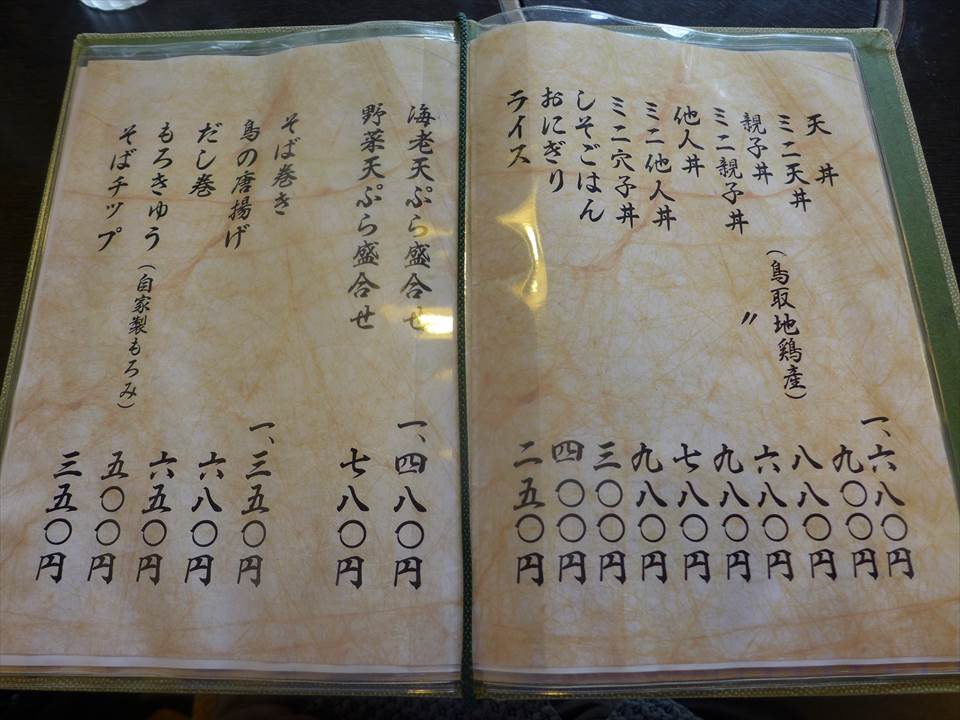 天丼 一、六八〇円
ミニ天丼 九〇〇円
親子丼（鳥取地鶏産） 八八〇円
ミニ親子丼 〃 六八〇円
他人丼 九八〇円
ミニ他人丼 七八〇円
ミニ穴子丼 九八〇円
しそごはん 三〇〇円
おにぎり 四〇〇円
ライス 二五〇円
海老天ぷら盛合せ 一、四八〇円
野菜天ぷら盛合せ 七八〇円
そば巻き 一、三五〇円
鳥の唐揚げ 六八〇円
だし巻 六五〇円
もろきゅう（自家製もろみ） 五〇〇円
そばチップ 三五〇円